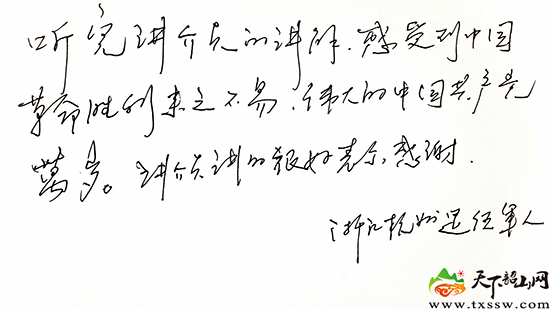 听完讲介员的讲解、感受到中国
革命胜利来之不易、伟大的中国共产党
萬岁。讲介员讲的很好表示感谢.
浙江杭州退伍軍人
天下韶山网
www.txssw.com